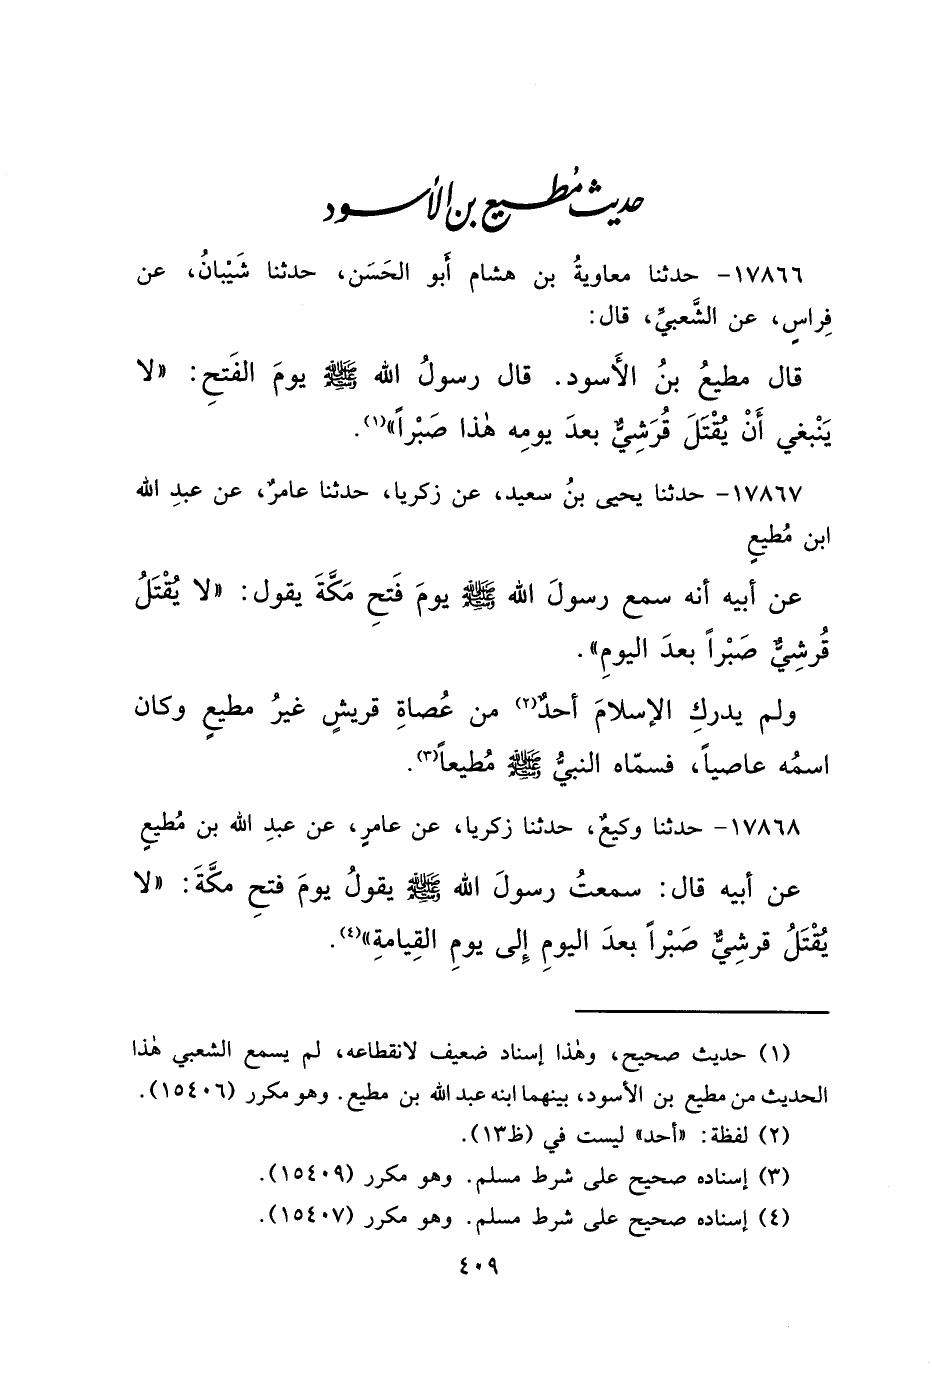 حديث مُطيع بن الأسود
١٧٨٦٦- حدثنا معاويةُ بن هشام أَبو الحَسَن، حدثنا شَيْبانُ، عن
فِراسٍ، عن الشَّعبيِّ، قال:
قال مطيعُ بنُ الأَسود. قال رسولُ الله ﷺ يومَ الفَتحِ: «لا
يَنْبغي أَنْ يُقْتَلَ قُرَشِيٌّ بعدَ يومِه هٰذا صَبْراً»(١).
١٧٨٦٧- حدثنا يحيى بنُ سعيد، عن زكريا، حدثنا عامرٌ، عن عبدِ الله
ابن مُطيعٍ
عن أبيه أنه سمع رسولَ الله ﷺ يومَ فَتحِ مَكَّةَ يقول: «لا يُقْتَلُ
قُرشِيٌّ صَبْراً بعدَ اليومِ».
ولم يدركِ الإسلامَ أحدٌ(٢) من عُصاةِ قريشٍ غيرُ مطيعٍ وكان
اسمُه عاصياً، فسمّاه النبيُّ ﷺ مُطيعاً(٣).
١٧٨٦٨- حدثنا وكيعٌ، حدثنا زكريا، عن عامرٍ، عن عبدِ الله بن مُطيعٍ
عن أبيه قال: سمعتُ رسولَ الله ﷺ يقولُ يومَ فتحِ مكَّةَ: «لا
يُقْتَلُ قرشِيٌّ صَبْراً بعدَ اليومِ إِلى يومِ القِيامةِ»(٤).
(١) حديث صحيح، وهٰذا إسناد ضعيف لانقطاعه، لم يسمع الشعبي هٰذا
الحديث من مطيع بن الأسود، بينهما ابنه عبد الله بن مطيع. وهو مكرر (١٥٤٠٦).
(٢) لفظة: «أحد» ليست في (ظ١٣).
(٣) إسناده صحيح على شرط مسلم. وهو مكرر (١٥٤٠٩).
(٤) إسناده صحيح على شرط مسلم. وهو مكرر (١٥٤٠٧).
٤٠٩